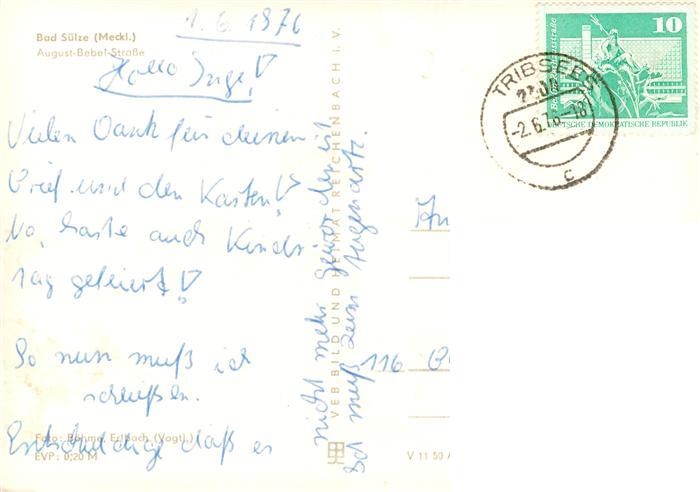 1.6.1976
Bad Sülze (Meckl.)
August-Bebel-Straße
Hallo Inge!
Vielen Dank für deinen
Brief und den Karten!
Na, haste auch Kinds
tag gefeiert?
So nun muß ich
schließen.
Entschuldige daß es
nicht mehr geworden ist
muß zum Augenarzt.
Foto: Böhme, Erlbach (Vogtl.)
EVP: 0,20 M
VEB BILD UND HEIMAT REICHENBACH I. V.
V 11 50
An
116
10
DEUTSCHE DEMOKRATISCHE REPUBLIK
TRIBSEES
-2.6.76-18
c